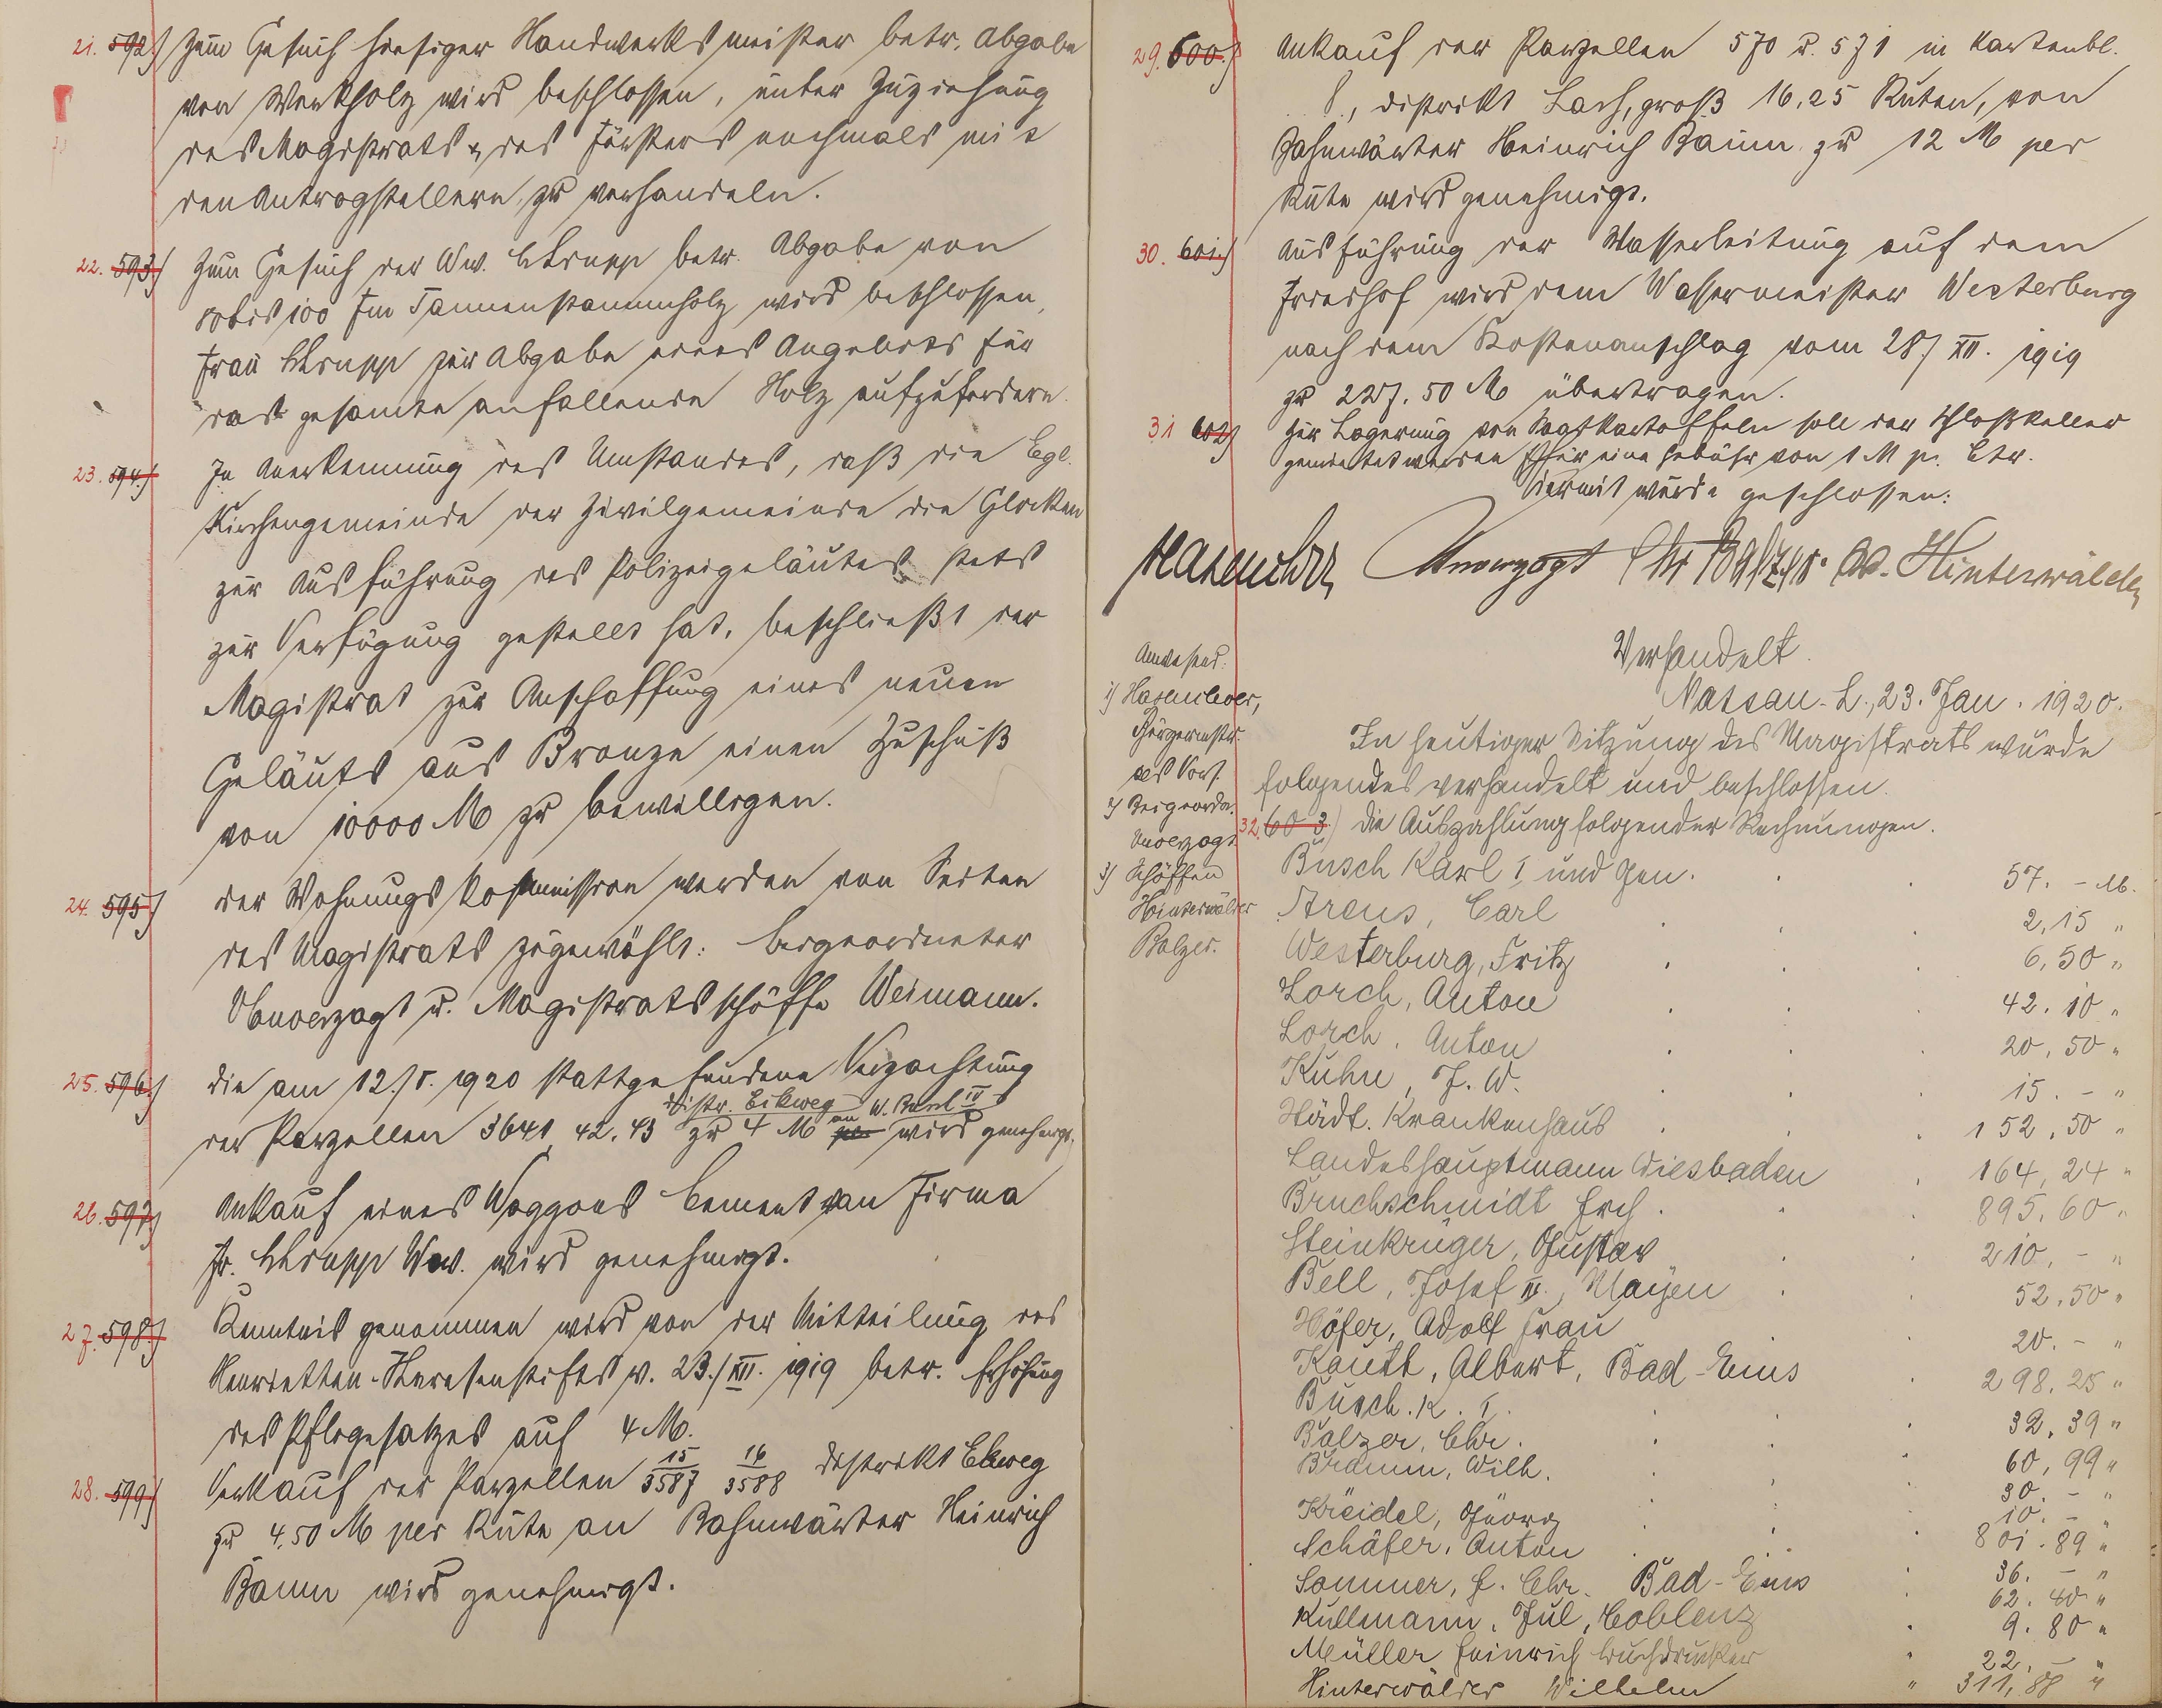 21. 592.) Zum Gesuch hiesiger Handwerksmeister betr. Abgabe
von Werkholz wird beschlossen, unter Zuziehung
des Magistrats u. des Försters nochmals mit
den Antragstellern zu verhandeln.
22. 593.) Zum Gesuch der Ww. Chr. Supp betr. Abgabe von
80 bis 100 fm Tannenstammholz wird beschlossen,
Frau Supp zur Abgabe eines Angebots für
das gesamte anfallende Holz aufzufordern.
23. 594.) In Anerkennung des Umstandes, daß die
Kirchengemeinde der Zivilgemeinde die Glocken
zur Ausführung des Polizeigeläutes stets
zur Verfügung gestellt hat, beschließt der
Magistrat zur Anschaffung eines neuen
Geläuts aus Bronze einen Zuschuß
von 10000 M zu bewilligen.
24. 595.) der Wohnungskommission werden von Seiten
des Magistrats zugewählt: Beigeordneter
Unverzagt u. Magistratsschöffe Weimann.
25. 596.) die am 12./I. 1920 stattgefundene Verpachtung
distr. Eikweg an W. IV
der Parzellen 3641, 42. 43 zu 4 M wird genehmigt.
26. 597.) Ankauf eines Waggons Cement von Firma
Supp Ww. wird genehmigt.
27. 598.) Kenntnis genommen wird von der Mitteilung des
Henrietten-Theresenstifts v. 23./XII. 1919 betr. Erhöhung
des Pflegesatzes auf 4 M.
28. 599.) Verkauf der Parzellen 15/3587 16/3588 distrikt Ekweg
zu 4,50 M per Rute an Bahnwärter Heinrich
Baum wird genehmigt.
29. 600.) Ankauf der Parzellen 570 u. 571 in Kartenbl.
8, distrikt Lach, groß 16,25 Ruten, von
Bahnwärter Heinrich Baum zu 12 M per
Rute wird genehmigt.
30. 601.) Ausführung der Wasserleitung auf dem
Friedhof wird dem Wassermeister Westerburg
nach dem Kostenanschlag vom 28./XII. 1919
zu 227.50 M übertragen.
31 602.) Zur Lagerung von Saatkartoffeln soll der Schloßkeller
gemietet werden für eine Gebühr von 1 M p. Ctr.
Hiermit wurde geschlossen:
Hasenclever Unverzagt Chr Balzer W. Hinterwälder
Verhandelt
Nassau-L., 23. Jan. 1920.
Anwesend:
1) Hasenclever,
Bürgermstr.
als Vors.
2) Beigeordn.
Unverzagt
3) Schöffen
Hinterwälder
Balzer.
In heutiger Sitzung des Magistrats wurde
folgendes verhandelt und beschlossen.
32. 603.) die Auszahlung folgender Rechnungen.
Busch Karl I und Gen. 57. - M.
Straus, Carl 2,15 "
Westerburg, Fritz 6,50 "
Lorch, Anton 42. 10 "
Lorch, Anton 20,50 "
Kuhn, J. W. 15. - "
Städt. Krankenhaus 152,50 "
Landeshauptmann Wiesbaden 164,24 "
Bruchschmidt Frch. 895,60 "
Steinkrüger, Gustav 210, - "
Bell, Josef III, Mayen 52,50 "
Höfer, Adolf Frau 20. - "
Kauth, Albert, Bad-Ems 298,25 "
Busch. K. I. 32,39 "
Balzer, Chr. 60,99 "
Bramm, Wilh. 30. - "
Kreidel, Georg 10. - "
Schäfer, Anton 801.89 "
Sommer, F. Chr. Bad-Ems 36. - "
Kullmann, Jul, Coblenz 62.40 "
Müller Heinrich Buchdrucker 9.80 "
22. - "
Hinterwälder Wilhelm " 311,88 "